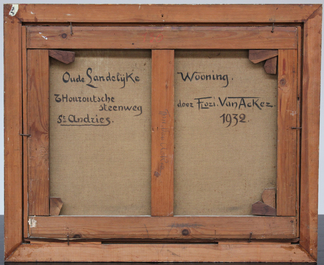 Oude Landelyke Wooning.
Thouroutsche
steenweg
St Andries.
door Flori. Van Acker
1932.